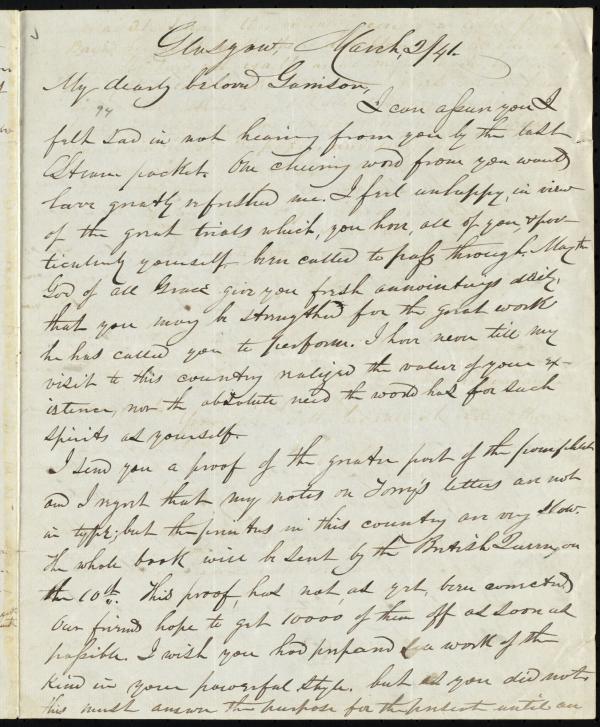 Glasgow, March, 2/41.
My dearly beloved Garrison,
I can assure you I
felt sad in not hearing from you by the last
Steam packet. One cheering word from you would
have greatly refreshed me. I feel unhappy, in view
of the great trials which, you have, all of you, & par-
ticularly yourself, been called to pass through. May the
God of all Grace give you fresh annointings daily,
that you may be strengthed for the great work
he has called you to perform. I have never till my
visit to this country realized the value of your ex-
istence, nor the absolute need the world has for such
spirits as yourself.
I send you a proof of the greater part of the pamphlet
and I regret that my notes on Torry's letters are not
in type; but the printers in this country are very slow.
The whole book will be sent by the British Queen, on
the 10th. This proof, has not, as yet, been corrected
Our friends hope to get 10000 of them off as soon as
possible. I wish you had prepared a work of the
kind in your powerful style. but as you did not
this must answer the purpose for the present until an